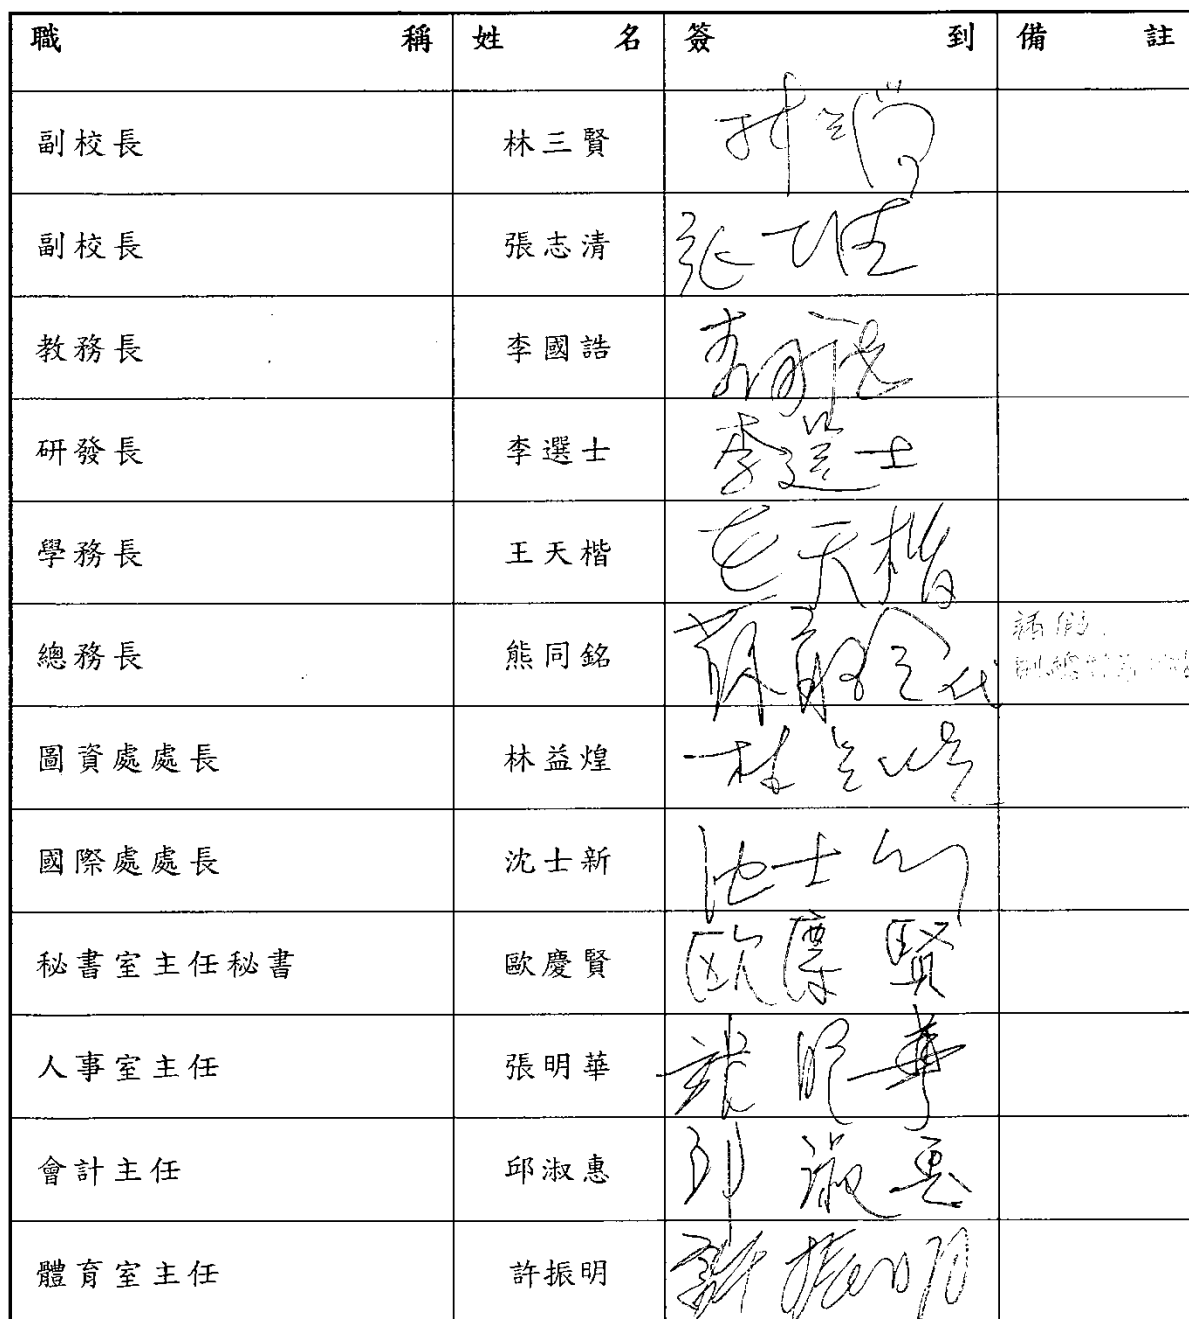 職稱 姓名 簽到 備註
副校長 林三賢
副校長 張志清 張志清
教務長 李國誥 李國誥
研發長 李選士 李選士
學務長 王天楷 王天楷
總務長 熊同銘 代 請假
圖資處處長 林益煌 林益煌
國際處處長 沈士新 沈士新
秘書室主任秘書 歐慶賢 歐慶賢
人事室主任 張明華 張明華
會計主任 邱淑惠 邱淑惠
體育室主任 許振明 許振明